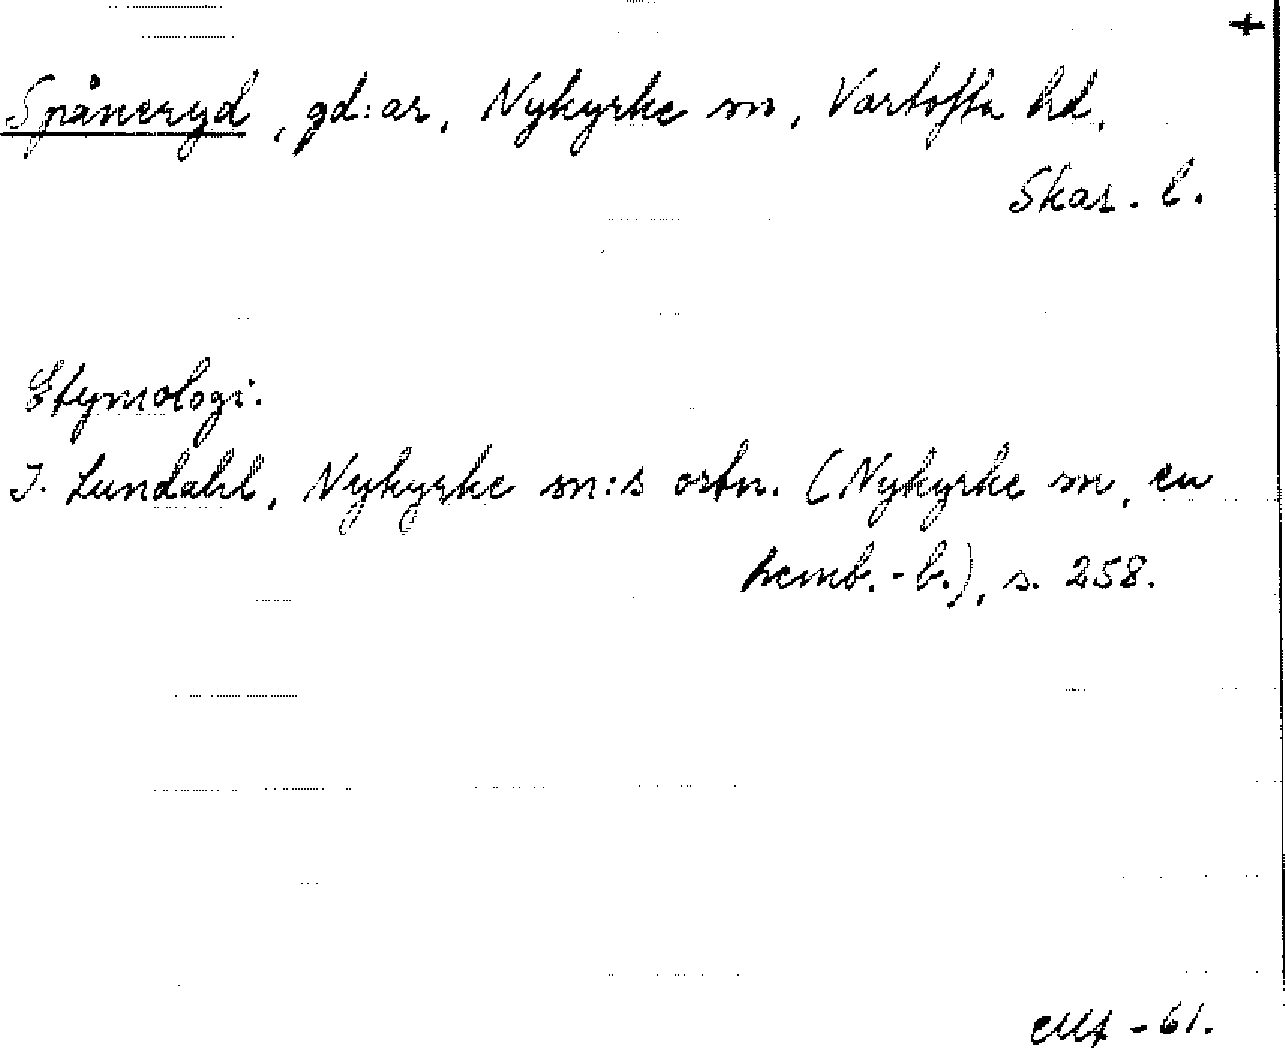 +
Spåneryd, gd:ar, Nykyrke sn, Vartofta hd,
Skar. l.
Etymologi:
I. Lundahl, Nykyrke sn:s ortn. (Nykyrke sn, en
hemb.-b.), s. 258.
-61.